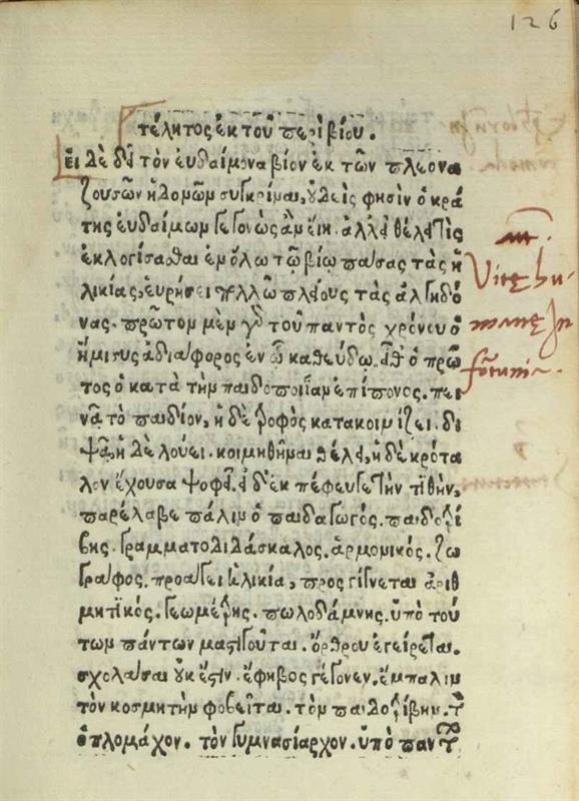 126
τέλητος ἐκ τοῦ περὶ βίου.
Εἰ δὲ δεῖ τὸν ἐυδαίμονα βίον ἐκ τῶν πλεονα
ζουσῶν ἡδονῶν συγκρίναι, οὐδείς φησιν ὁ κρά
της ἐυδαίμων γεγονὼς ἂν εἴη. ἀλλ' ἐι θέλει τὶς
ἐκλογίσασθαι ἐν ὅλω τῶ βίω πάσας τὰς ἡ
λικίας, ἑυρήσει πολλῶ πλείους τὰς ἀλγηδό
νας. πρῶτον μὲν γὰρ τοῦ παντὸς χρόνου ὁ
ἥμισυς ἀδιάφορος ἐν ὧ καθεύδω. εἶθ' ὁ πρῶ
τος ὁ κατὰ τὴν παιδοποιΐαν ἐπίπονος. πει
νᾶ τὸ παιδίον, ἡ δὲ τροφὸς κατακοιμίζει. δι
ψᾶ, ἡ δὲ λούει. κοιμηθῆναι θέλει, ἡ δὲ κρότα
λον ἔχουσα ψοφεῖ. εἰ δ' ἐκπέφευγε τὴν τίθην,
παρέλαβε πάλιν ὁ παιδαγωγός. παιδοτρί
βης. γραμματοδιδάσκαλος. ἁρμονικός. ζω
γράφος. προάγει ἡλικία, προσγίγνεται ἀριθ
μητικός. γεωμέτρης. πωλοδάμνης. ὑπὸ τού
των πάντων μαστιγοῦται. ὄρθρου ἐγείρεται.
σχολάσαι οὐκ ἔστιν. ἔφηβος γέγονεν. ἔμπαλιν
τὸν κοσμητὴν φοβεῖται. τὸν παιδοτρίβην. τὸν
ὁπλομάχον. τὸν γυμνασίαρχον. ὑπὸ παντων
Vitę hu-
manę In
fortuni